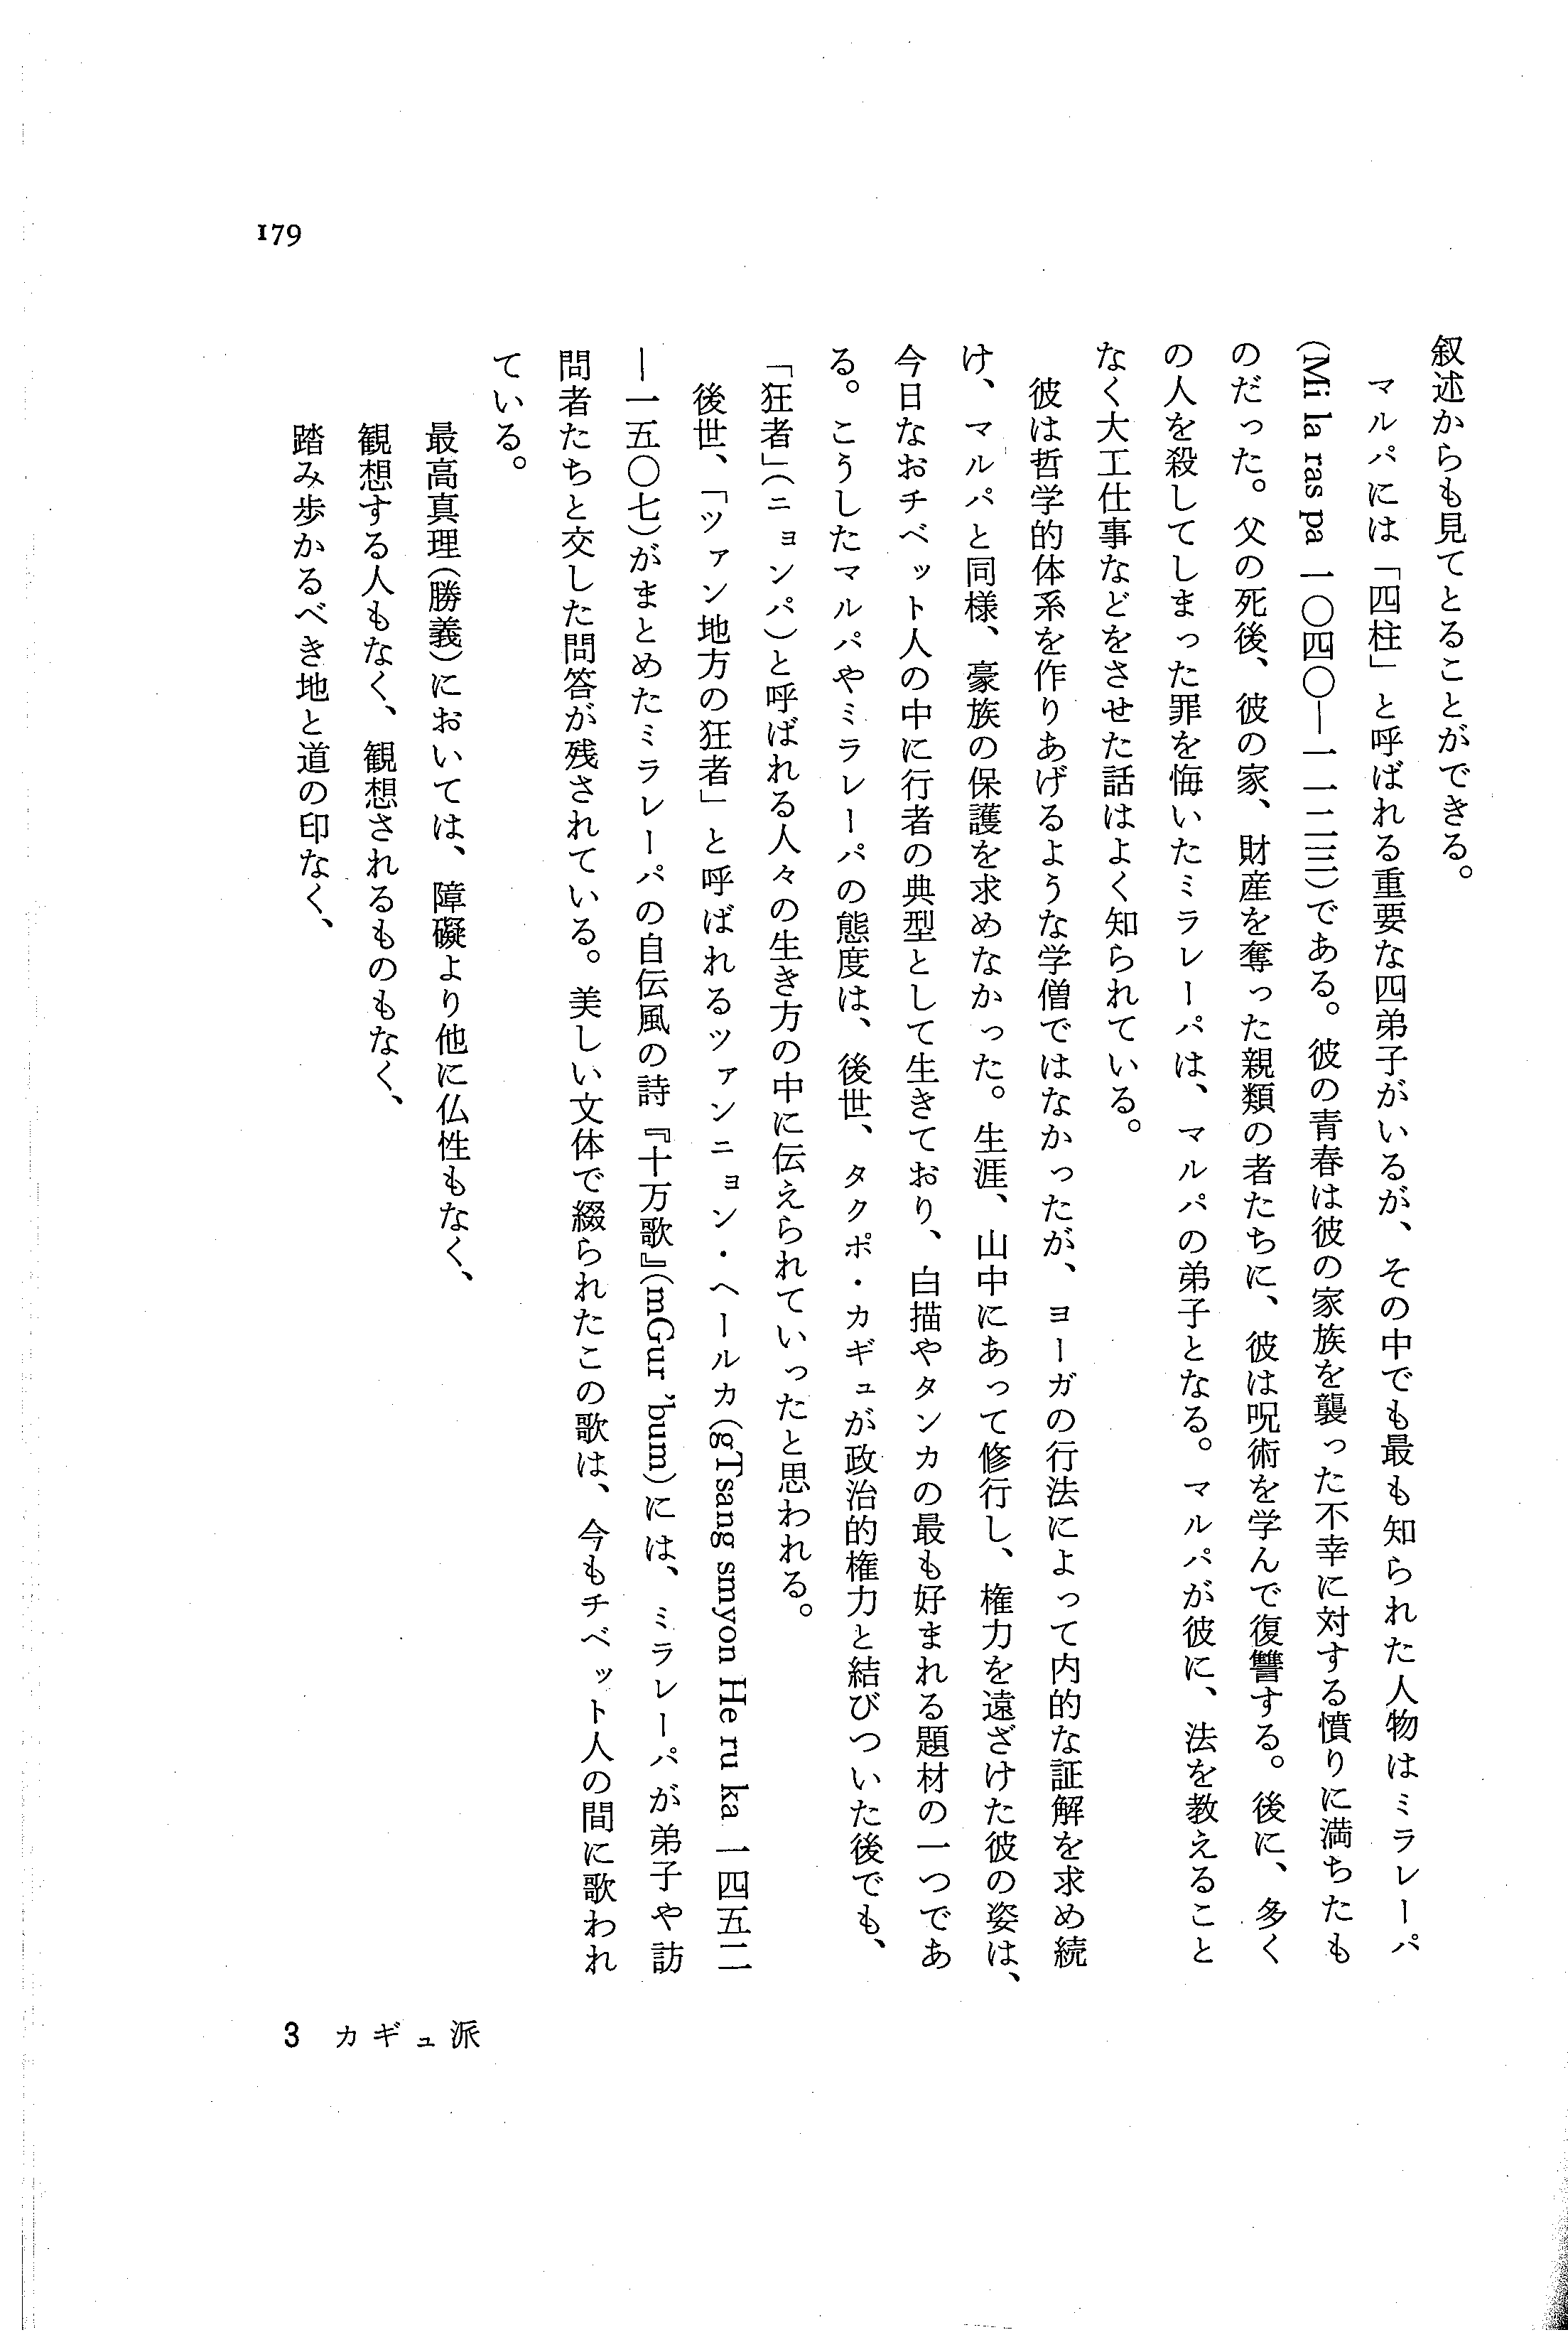 叙述からも見てとることができる。
マルパには「四柱」と呼ばれる重要な四弟子がいるが、その中でも最も知られた人物はミラレーパ
(Mi la ras pa 一〇四〇―一一二三)である。彼の青春は彼の家族を襲った不幸に対する憤りに満ちたも
のだった。父の死後、彼の家、財産を奪った親類の者たちに、彼は呪術を学んで復讐する。後に、多く
の人を殺してしまった罪を悔いたミラレーパは、マルパの弟子となる。マルパが彼に、法を教えること
なく大工仕事などをさせた話はよく知られている。
彼は哲学的体系を作りあげるような学僧ではなかったが、ヨーガの行法によって内的な証解を求め続
け、マルパと同様、豪族の保護を求めなかった。生涯、山中にあって修行し、権力を遠ざけた彼の姿は、
今日なおチベット人の中に行者の典型として生きており、白描やタンカの最も好まれる題材の一つであ
る。こうしたマルパやミラレーパの態度は、後世、タクポ・カギュが政治的権力と結びついた後でも、
「狂者」(ニョンパ)と呼ばれる人々の生き方の中に伝えられていったと思われる。
後世、「ツァン地方の狂者」と呼ばれるツァンニョン・ヘールカ(gTsang smyon He ru ka 一四五二
―一五〇七)がまとめたミラレーパの自伝風の詩『十万歌』(mGur 'bum)には、ミラレーパが弟子や訪
問者たちと交した問答が残されている。美しい文体で綴られたこの歌は、今もチベット人の間に歌われ
ている。
最高真理(勝義)においては、障礙より他に仏性もなく、
観想する人もなく、観想されるものもなく、
踏み歩かるべき地と道の印なく、
179
3 カギュ派